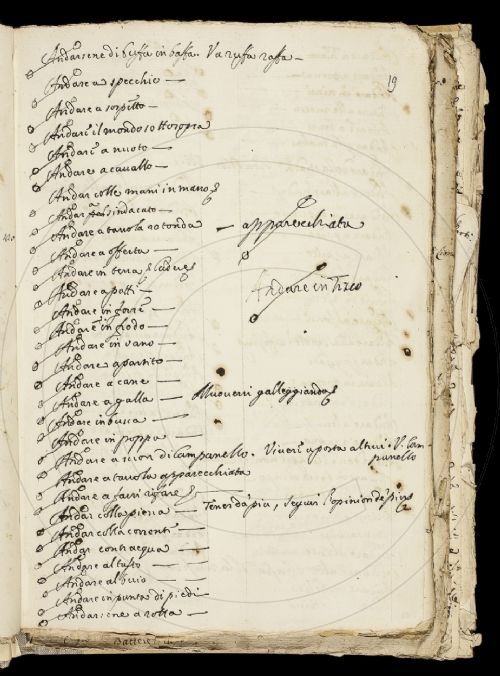 19
Andarsene di buffa in baffa. Va ruffa raffa —
Andare a specchio —
Andare a sospetto —
Andare il mondo sottosopra
Andare a nuoto —
Andare a cavallo —
Andar colle mani in mano
Andar pel sindacato —
Andare a tavola rotonda — apparecchiata
Andare a offerta —
Andare in terra
Andare a potti —
Andare in Tisico
Andare in
Andare in
Andare in vano —
Andare a partito —
Andare a cane —
Andare a galla — Muoversi galleggiando
Andare in busca —
Andare in poppa —
Andare a suon di Campanello. Vivere a posta altrui. V. Cam-
panello
Andare a tavola apparecchiata
Andare a farsi
Andar colla piena — Tener da più, seguir l'opinion de più
Andar colla corrente —
Andar contracqua —
Andare al tasto —
Andare al buio —
Andare in punta di piedi —
Andarsene a rotta —
Battere